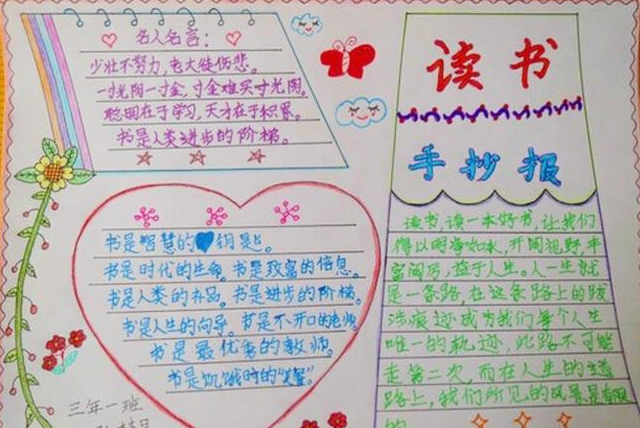 名人名言：
少壮不努力，老大徒伤悲。
一寸光阴一寸金，寸金难买寸光阴。
聪明在于学习，天才在于积累。
书是人类进步的阶梯。
读书
手抄报
书是智慧的钥匙。
书是时代的生命。书是致富的信息。
书是人类的补品。书是进步的阶梯。
书是人生的向导。书是不开口的老师。
书是最优秀的教师。
书是饥饿时的"套餐"。
读书，读一本好书，让我们
得以明净如水，开阔视野，丰
富阅历，益于人生。人一生就
是一条路，在这条路上的跋
涉痕迹成为我们每个人生
唯一的轨迹，此路不可能
走第二次，而在人生的道
路上，我们所见的风景是有限
的
三年一班